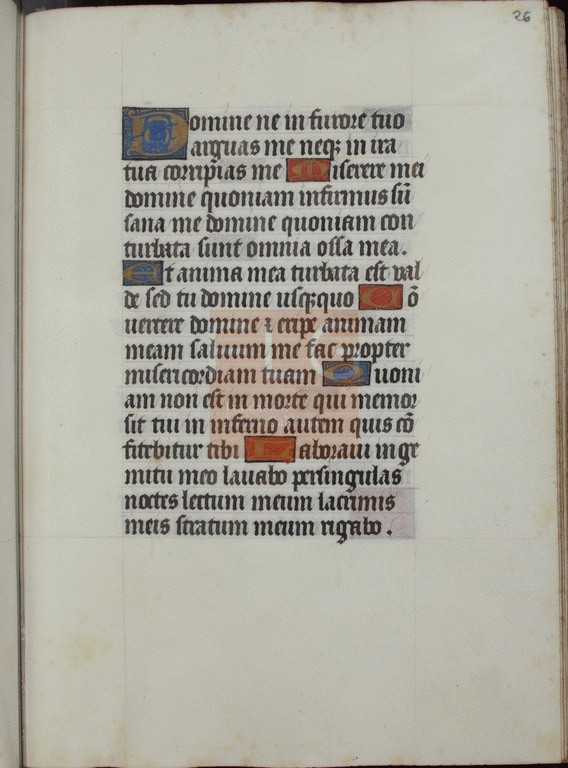 26
Domine ne in furore tuo
arguas me neqꝫ in ira
tua corripias me Miserere mei
domine quoniam infirmus sū
sana me domine quoniam con
turbata sunt omnia ossa mea.
Et anima mea turbata est val
de sed tu domine usqꝫquo Cō
uertere domine ⁊ eripe animam
meam saluum me fac propter
misericordiam tuam Quoni
am non est in morte qui memor
sit tui in inferno autem quis cō
fitebitur tibi Laboraui in ge
mitu meo lauabo persingulas
noctes lectum meum lacrimis
meis stratum meum rigabo.